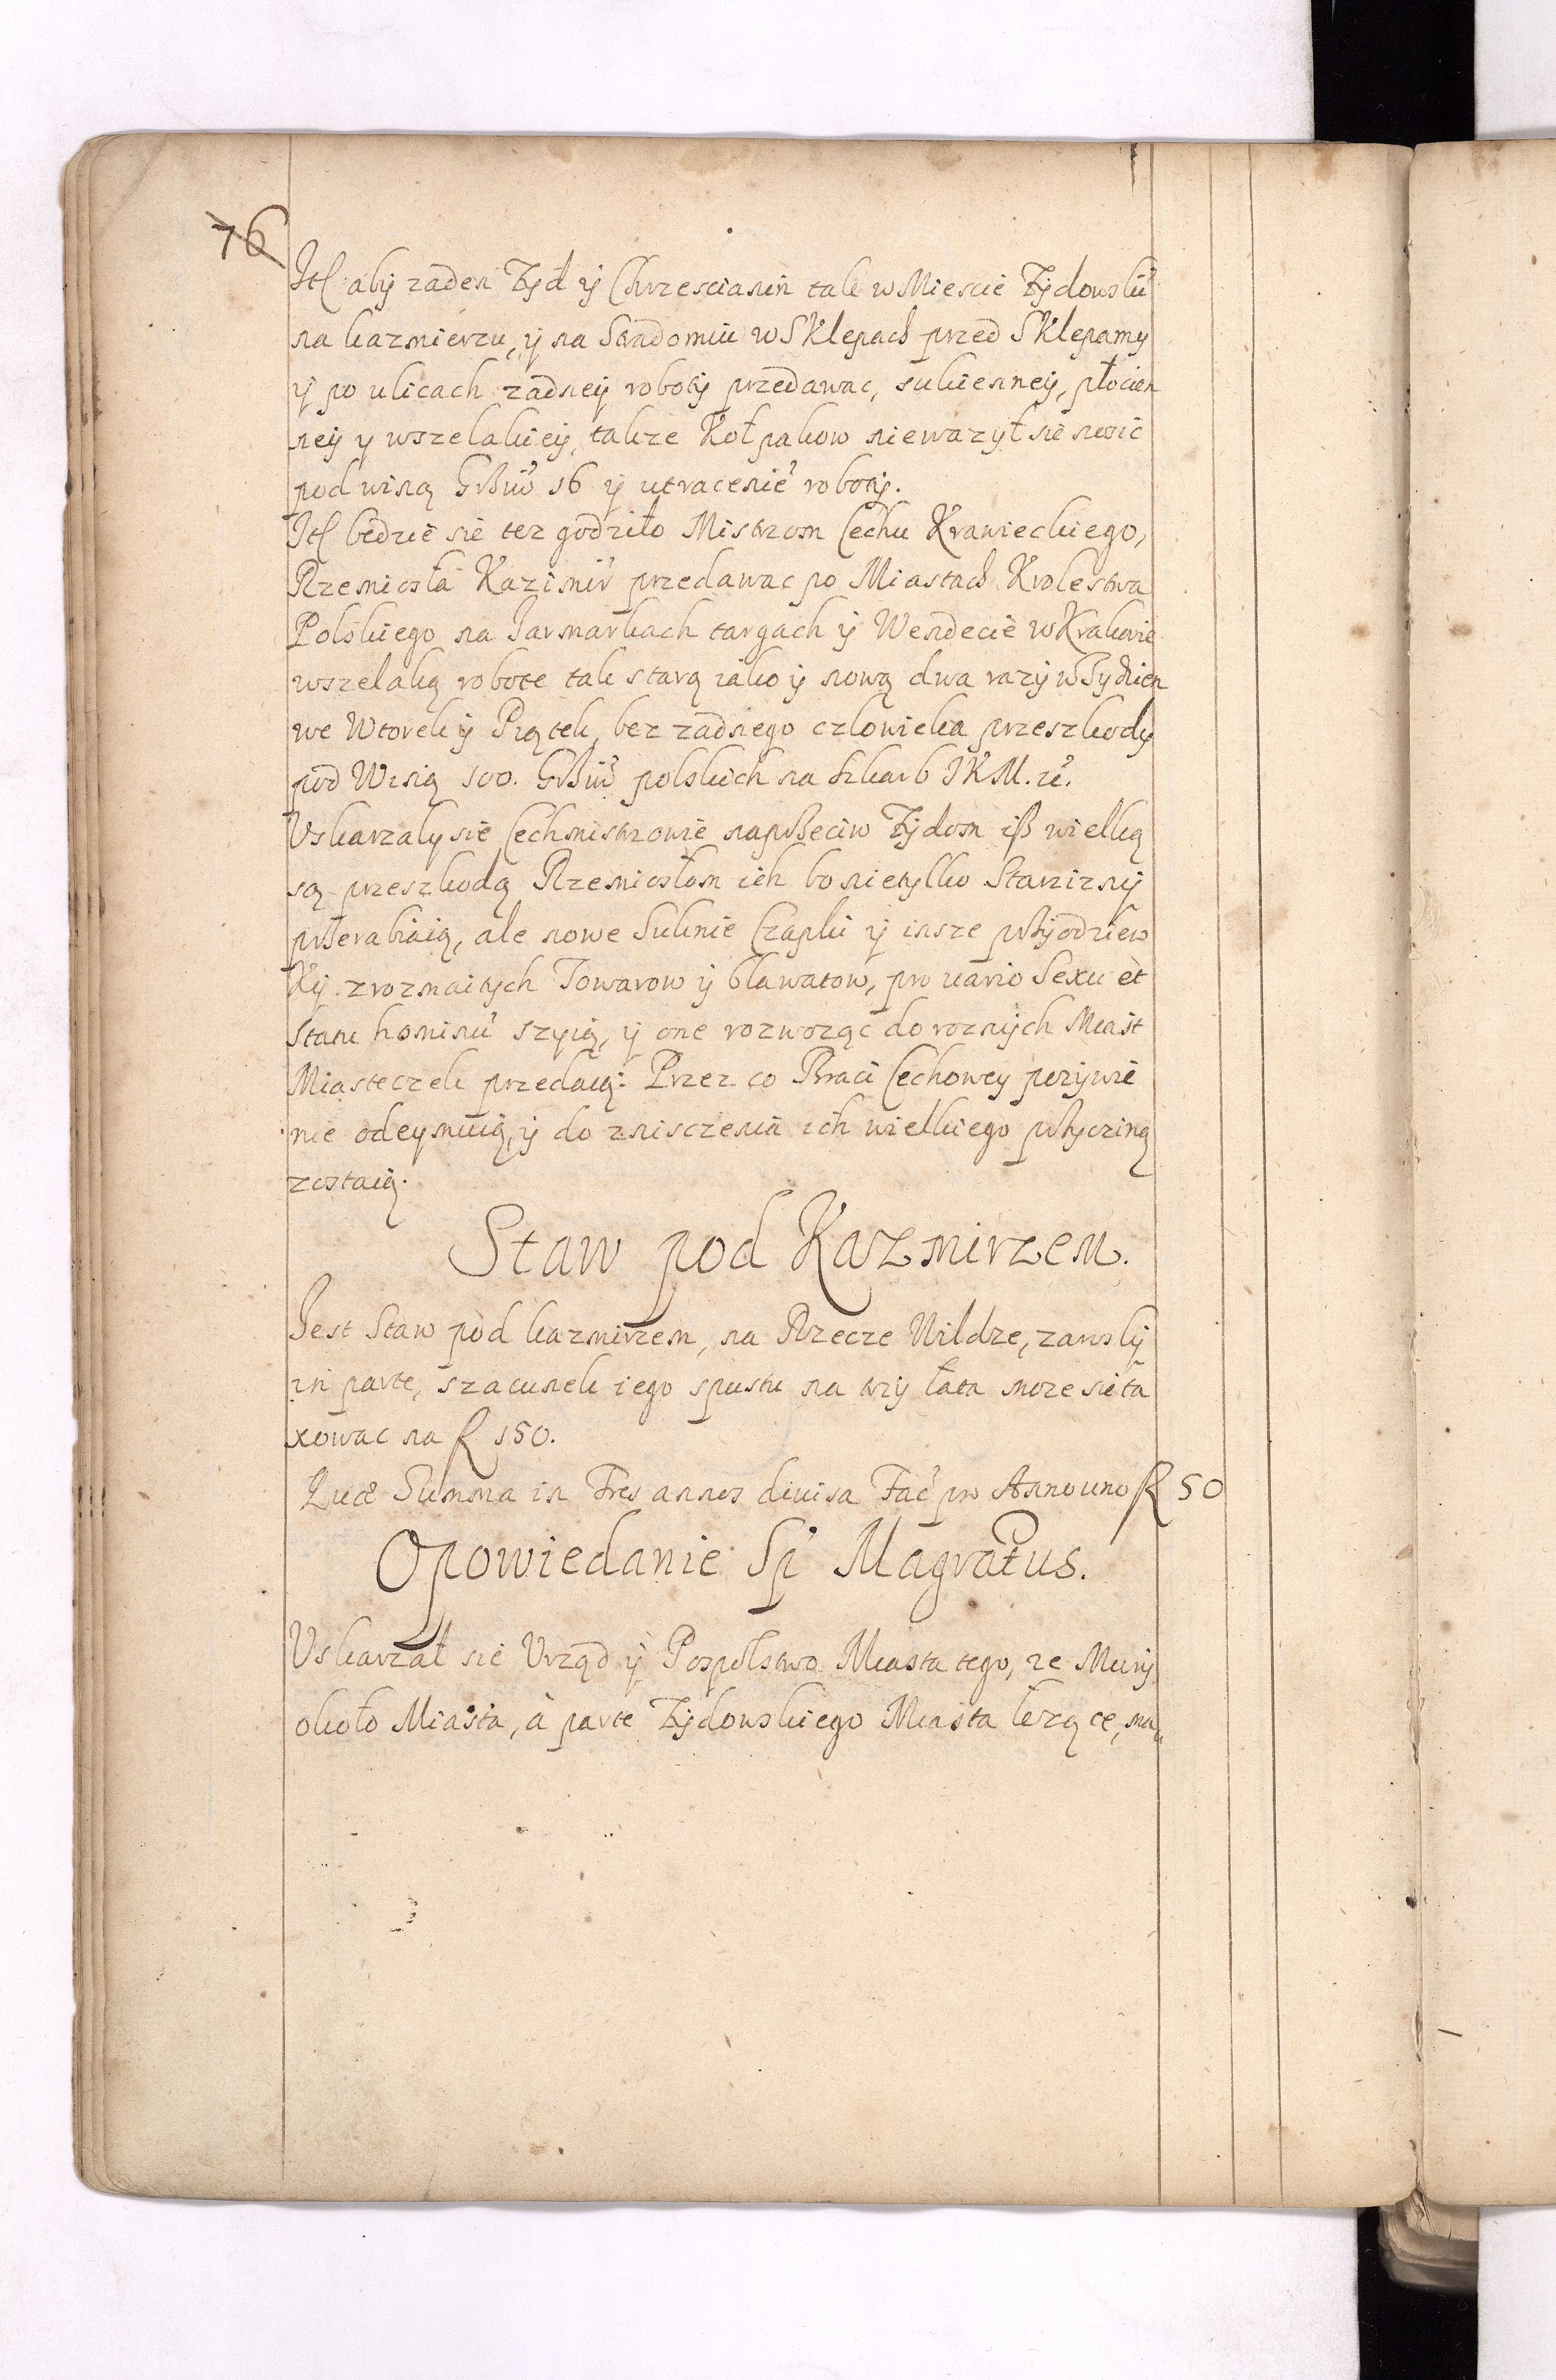 76
Itẽ aby zaden Zyd y Chrzescianin tak w Miescie Zydowskiḿ
na kazmierzu, y na Stradomiu w Sklepach przed Sklepamy
y po ulicach zadney roboty przedawac, sukienney, płocien
ney y wszelakiey, takze Kołpakow niewazył sie nosic
pod winą Grziẃ 16 y utracenié roboty.
Itẽ bedzie sie tez godziło Mistrzom Cechu Krawieckiego,
Rzemiosła Kazimiŕ przedawac po Miastach Krolestwa
Polskiego na Jarmarkach targach y Wendecie w Krakowie
wszelaką robote tak starą iako y nową dwa razy w Tydzien
we Wtorek y Piątek, bez zadnego człowieka przeszkody
pod Winą 100. Grziẃ polskich na Skarb JKM. ić.
Uskarzaly sie Cechmistrzowie naprzeciw Zydom iß wielką
są przeszkodą Rzemiosłom ich bo nietylko Starzizny
przerabiaią, ale nowe Suknie Czapki y insze przyodziew
Ky z rozmaitych Towarow y bławatow, pro vario Sexu et
statu hominú szyią, y one rozwoząc do roznych Miast
Miasteczek przedaią: Przez co Braci Cechowey pozywie
nie odeymuią, y do znisczenia ich wielkiego przycziną
zostaią.
Staw pod Kazmirzem.
Jest Staw pod kazmirzem, na Rzecze Wildze, zarosly
in parte, szacunek iego spustu na trzy lata moze sie ta
xowac na f 150.
Quæ Summa in Tres annos divisa Fać pro Anno uno f 50
Opowiedanie Sp̃ Magratus.
Uskarzał sie Urząd y Pospolstwo Miasta tego, ze Mury
około Miasta, à parte Zydowskiego Miasta lezące,